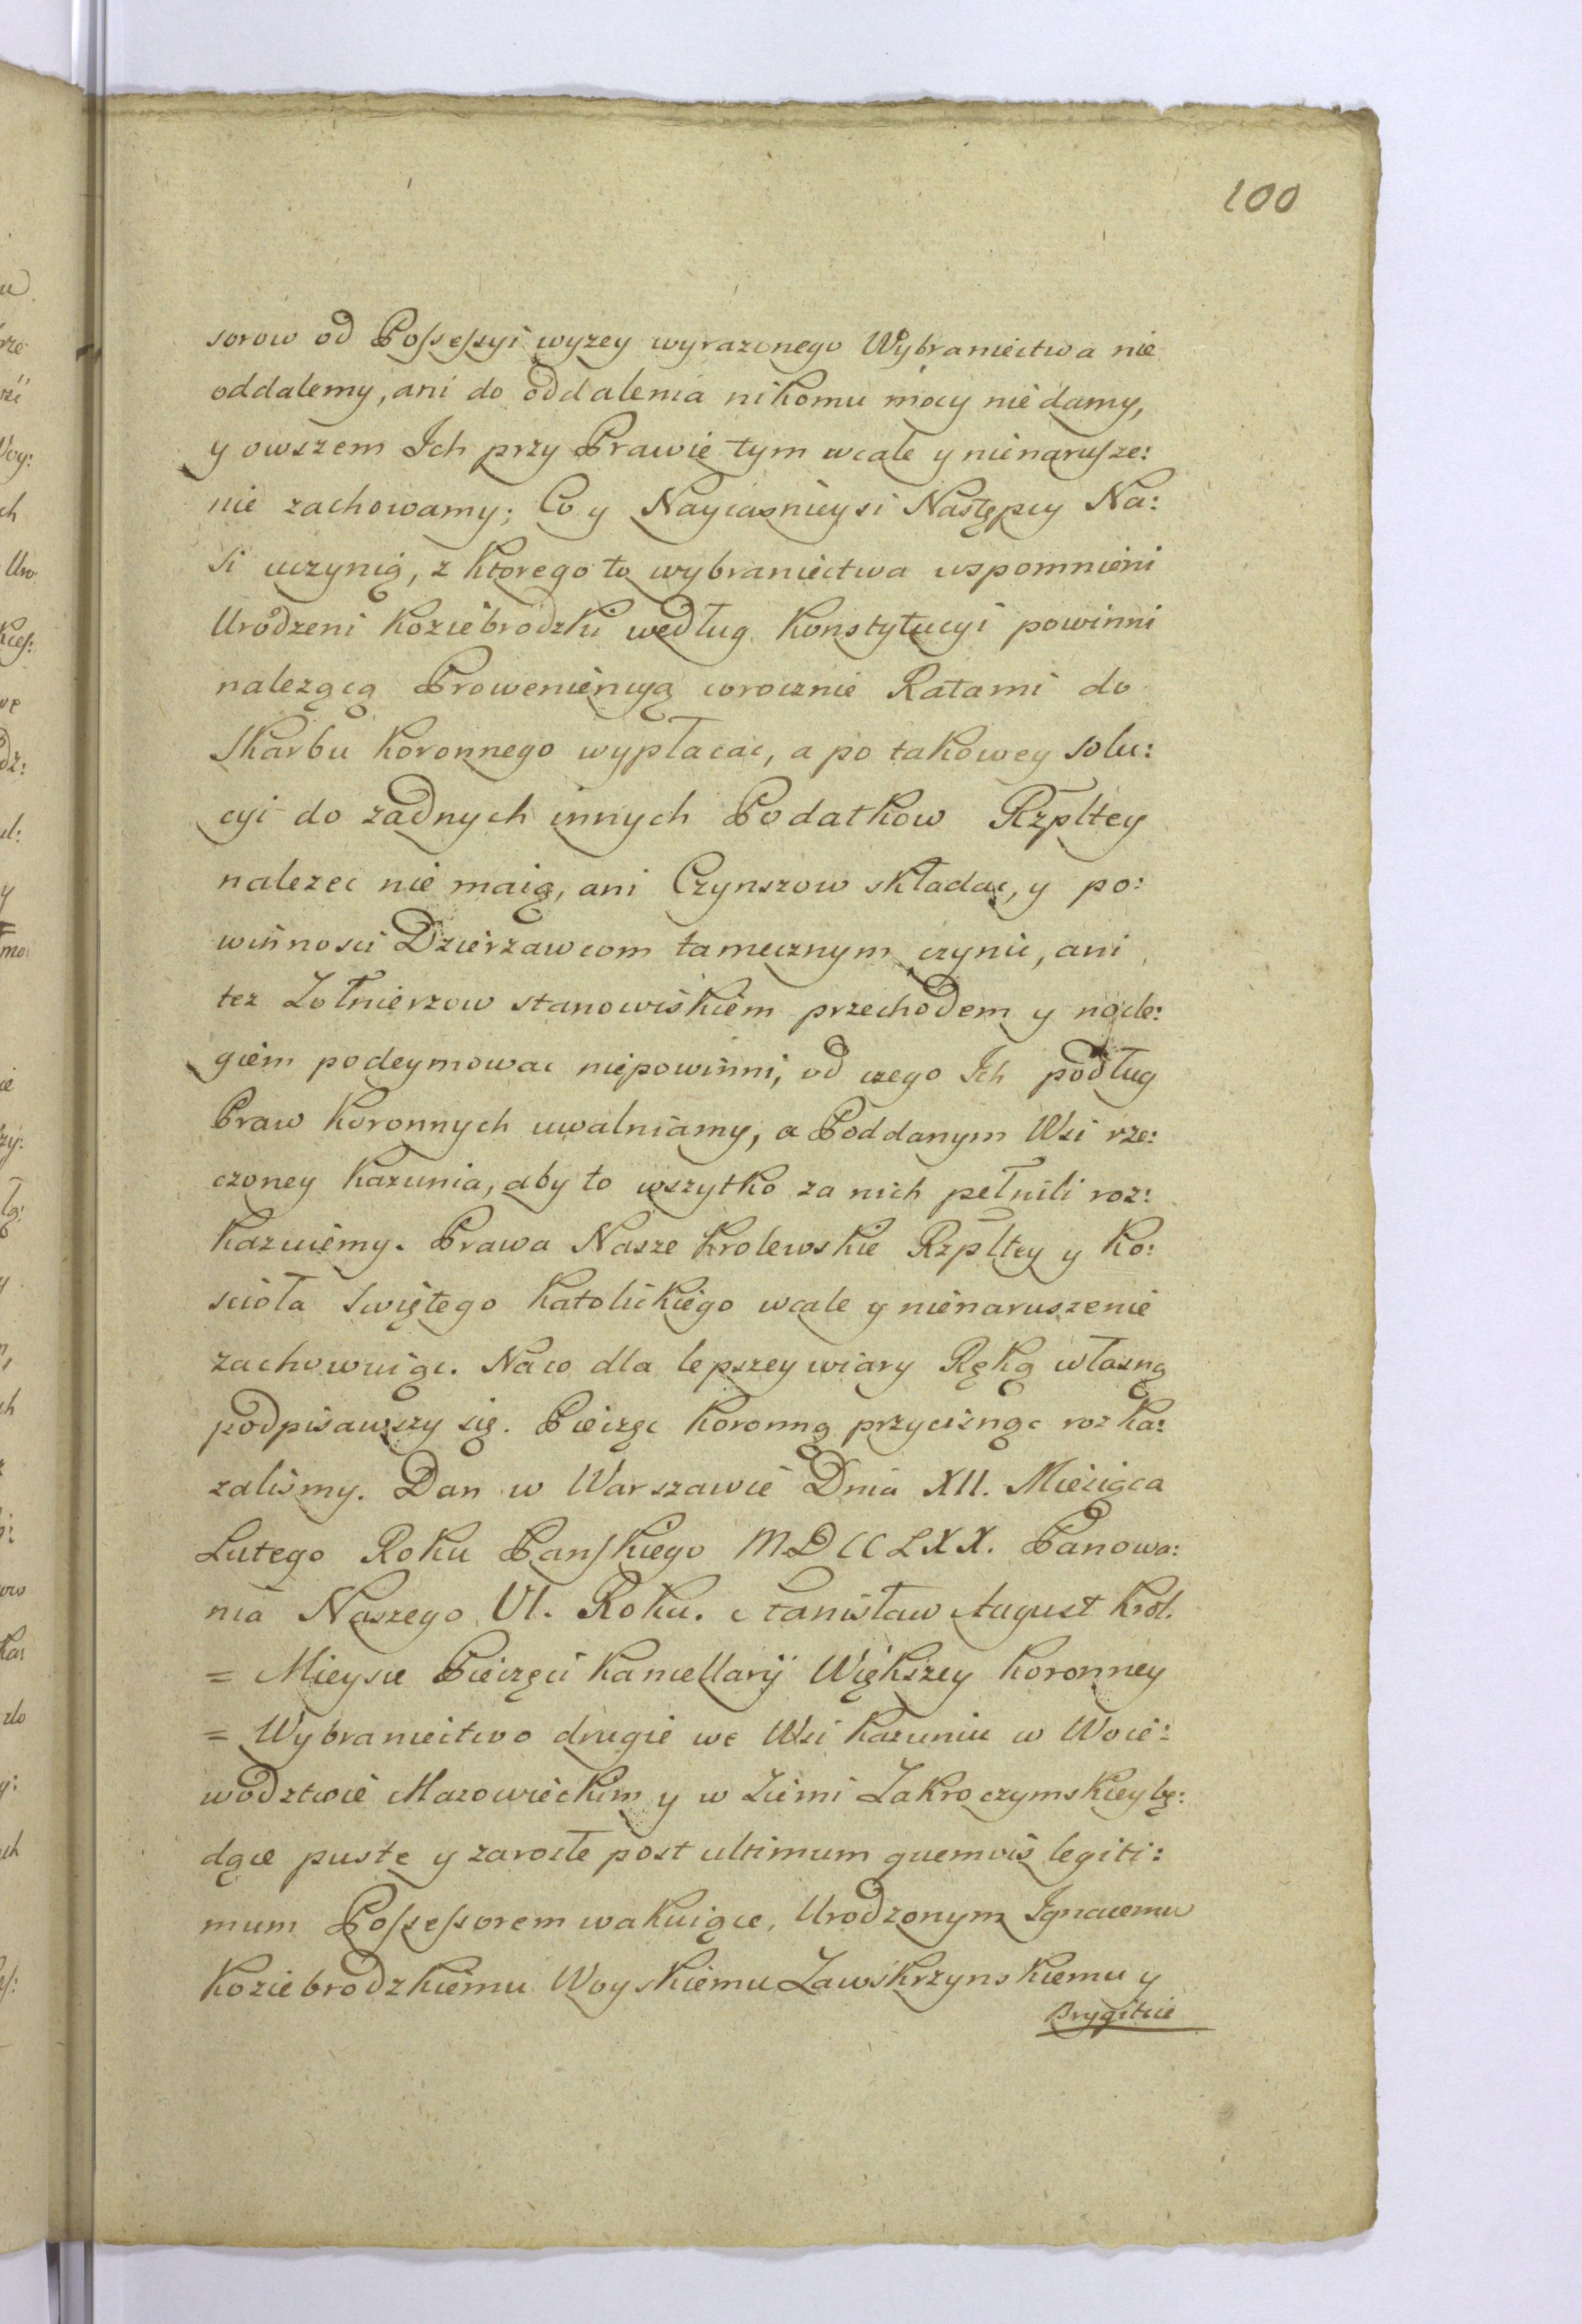 100
sorow od Possessyi wyzey wyrazonego Wybraniectwa nie
oddalemy, ani do oddalenia nikomu mocy nie damy,
y owszem Ich przy Prawie tym wcale y nienarusze:
nie zachowamy; Co y Nayiasnieysi Następcy Na:
si uczynią, z ktorego to wybraniectwa wspomnieni
Urodzeni Koziebrodzki według Konstytucyi powinni
nalezącą Proweniencyą corocznie Ratami do
Skarbu Koronnego wypłacac, a po takowey solu:
cyi do zadnych innych Podatkow Rzpltey
nalezec nie maią, ani Czynszow składac, y po:
winnosci Dzierzawcom tamecznym czynic, ani
tez Zołnierzow stanowiskiem przechodem y nocle:
giem podeymowac niepowinni, od czego Ich podług
Praw Koronnych uwalniamy, a Poddanym Wsi rze:
czoney Kazunia, aby to wszytko za nich pełnili roz:
kazuiemy. Prawa Nasze Krolewskie Rzpltey y Ko:
scioła Swiętego Katolickiego wcale y nienaruszenie
zachowuiąc. Naco dla lepszey wiary Ręką własną
podpisawszy się. Pieczęc Koronną przycisnąc rozka:
zalismy. Dan w Warszawie Dnia XII. Miesiąca
Lutego Roku Panskiego MDCCLXX. Panowa:
nia Naszego VI. Roku. Stanisław August Krol.
= Mieysce Pieczęci Kancellaryi Większey Koronney
= Wybraniectwo drugie we Wsi Kazuniu w Woie:
wodztwie Mazowieckim y w Ziemi Zakroczymskiey bę:
dące puste y zarosłe post ultimum quemvis legiti:
mum Possessorem wakuiące, Urodzonym Ignacemu
Koziebrodzkiemu Woyskiemu Zawskrzynskiemu y
Brygitcie